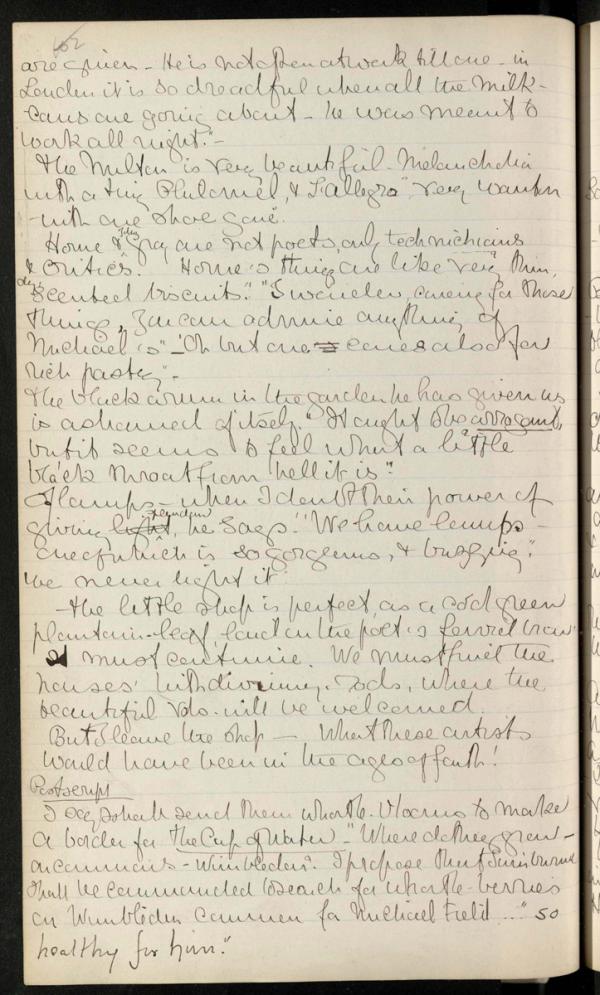 62
are given - He is not often at work till one - in
London it is so dreadful when all the milk-
cans are going about - he was meant to
work all night." -
The Milton is very beautiful - Melancholia
with a tiny Philomel, & L'allegro" very wanton
- with one shoe gone.
Home & Gray are not poets, only technichians
& critics. Home's things are like very thin,
scented biscuits." "I wonder, caring for those
things, you can admire anything of
Michael's" - 'Oh but one cares also for
rich pastry" -
The black arum in the garden he has given us
is ashamed of itself. "It ought to be arrogant,
but it seems to feel what a little
black throat from hell it is."
Of lamps - when I doubt their power of
giving light, he says. "We have lamps -
one of which is so gorgeous, &
we never light it
- The little shop is perfect, as a cool green
plantain-leaf laid on the poet's fervid brow
It must continue. We must find the
houses with divining-rods, where the
beautiful vols. will be welcomed.
But I leave the shop - What these artists
would have been in the ages of faith!
Postscript
I say I shall send them whortle-blooms to make
a border for The Cup of Water - "Where do they grow -
on commons - Wimbledon". I propose that Swinburne
shall be commanded to search for whortle-berries
on Wimbledon Common for Michael Field ..." so
healthy for him."